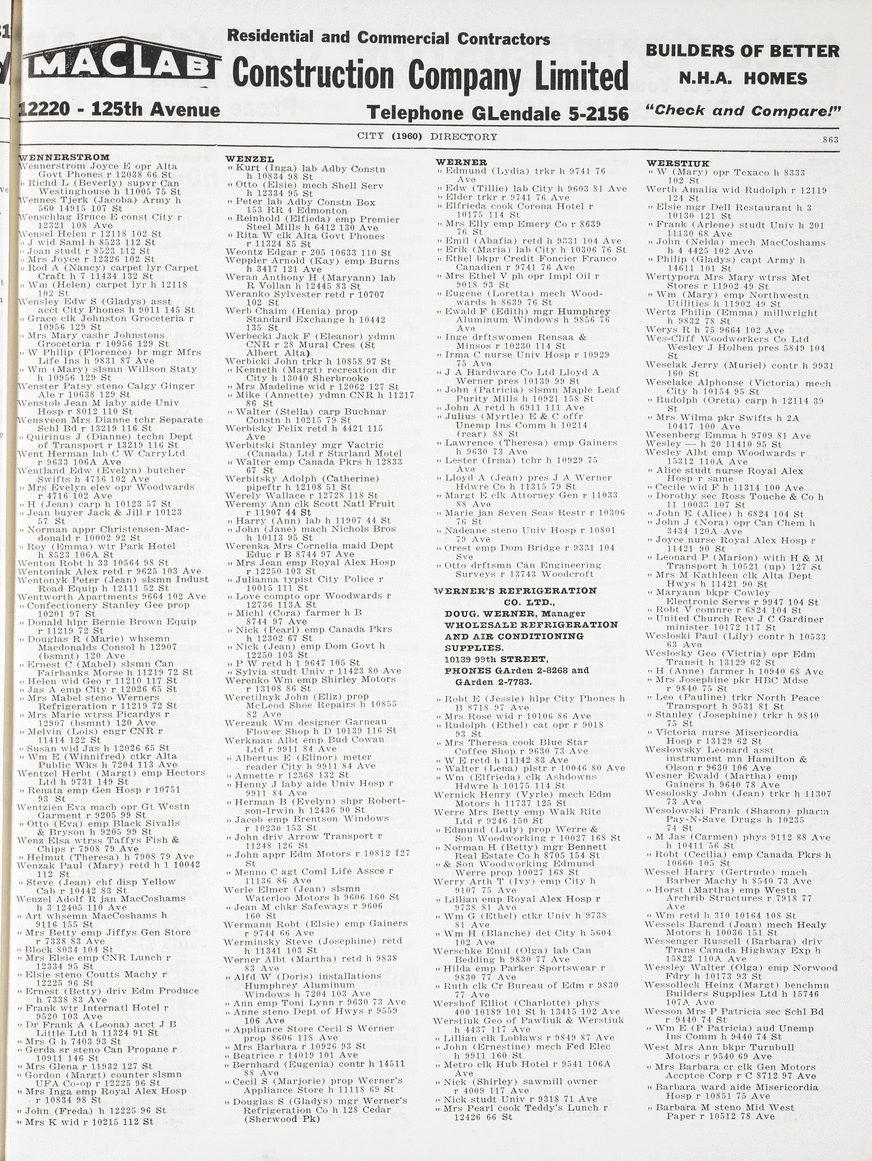 MACLAB
Residential and Commercial Contractors
Construction Company Limited
BUILDERS OF BETTER
N.H.A. HOMES
12220 - 125th Avenue
Telephone GLendale 5-2156
"Check and Compare!"
CITY (1960) DIRECTORY
863
WENNERSTROM
Wennerstrom Joyce E opr Alta
Govt Phones r 12038 66 St
" Richd L (Beverly) supvr Can
Westinghouse h 11005 75 St
Wennes Tjerk (Jacoba) Army h
560 14915 107 St
Wenschlag Bruce E const City r
12321 108 Ave
Wensel Helen r 12118 102 St
" J wid Saml h 8523 112 St
" Joan studt r 8523 112 St
" Mrs Joyce r 12326 102 St
" Rod A (Nancy) carpet lyr Carpet
Craft h 7 11434 132 St
" Wm (Helen) carpet lyr h 12118
102 St
Wensley Edw S (Gladys) asst
acct City Phones h 9011 145 St
" Grace clk Johnston Groceteria r
10956 129 St
" Mrs Mary cashr Johnstons
Groceteria r 10956 129 St
" W Philip (Florence) br mgr Mfrs
Life Ins h 9831 87 Ave
" Wm (Mary) slsmn Willson Staty
h 10956 129 St
Wenster Patsy steno Calgy Ginger
Ale r 10638 129 St
Wenstob Jean M laby aide Univ
Hosp r 8012 110 St
Wensveen Mrs Dianne tchr Separate
Schl Bd r 13219 116 St
" Quirinus J (Dianne) techn Dept
of Transport r 13219 116 St
Went Herman lab C W CarryLtd
r 9633 106A Ave
Wentland Edw (Evelyn) butcher
Swifts h 4716 102 Ave
" Mrs Evelyn elev opr Woodwards
r 4716 102 Ave
" H (Jean) carp h 10123 57 St
" Jean buyer Jack & Jill r 10123
57 St
" Norman appr Christensen-Mac-
donald r 10002 92 St
" Roy (Emma) wtr Park Hotel
h 8523 106A St
Wenton Robt h 33 10564 98 St
Wentoniak Alex retd r 9625 103 Ave
Wentonyk Peter (Jean) slsmn Indust
Road Equip h 12111 52 St
Wentworth Apartments 9664 102 Ave
" Confectionery Stanley Gee prop
10201 97 St
" Donald hlpr Bernie Brown Equip
r 11219 72 St
" Douglas R (Marie) whsemn
Macdonalds Consol h 12907
(bsmnt) 120 Ave
" Ernest C (Mabel) slsmn Can
Fairbanks Morse h 11219 72 St
" Helen wid Geo r 11210 117 St
" Jas A emp City r 12026 65 St
" Mrs Mabel steno Werners
Refrigeration r 11219 72 St
" Mrs Marie wtrss Picardys r
12907 (bsmnt) 120 Ave
" Melvin (Lois) engr CNR r
11414 122 St
" Susan wid Jas h 12026 65 St
" Wm E (Winnifred) ctkr Alta
Public Wks h 7204 113 Ave
Wentzel Herbt (Margt) emp Hectors
Ltd h 9731 149 St
" Renata emp Gen Hosp r 10751
93 St
Wentzien Eva mach opr Gt Westn
Garment r 9205 99 St
" Otto (Eva) emp Black Sivalls
& Bryson h 9205 99 St
Wenz Elsa wtrss Taffys Fish &
Chips r 7908 79 Ave
" Helmut (Theresa) h 7908 79 Ave
Wenzak Paul (Mary) retd h 1 10042
112 St
" Steve (Jean) chf disp Yellow
Cab r 10442 83 St
Wenzel Adolf R jan MacCoshams
h 3 12405 110 Ave
" Art whsemn MacCoshams h
9116 155 St
" Mrs Betty emp Jiffys Gen Store
r 7338 83 Ave
" Block 8034 104 St
" Mrs Elsie emp CNR Lunch r
12334 95 St
" Elsie steno Coutts Machy r
12225 96 St
" Ernest (Betty) driv Edm Produce
h 7338 83 Ave
" Frank wtr Internatl Hotel r
9520 103 Ave
" Dr Frank A (Leona) acct J B
Little Ltd h 11324 91 St
" Mrs G h 7403 93 St
" Gerda sr steno Can Propane r
10911 146 St
" Mrs Glena r 11932 127 St
" Gordon (Margt) counter slsmn
UFA Co-op r 12225 96 St
" Mrs Inga emp Royal Alex Hosp
r 10834 98 St
" John (Freda) h 12225 96 St
" Mrs K wid r 10215 112 St
WENZEL
" Kurt (Inga) lab Adby Constn
h 10834 98 St
" Otto (Elsie) mech Shell Serv
h 12334 95 St
" Peter lab Adby Constn Box
153 RR 4 Edmonton
" Reinhold (Elfieda) emp Premier
Steel Mills h 6412 130 Ave
" Rita W clk Alta Govt Phones
r 11324 85 St
Weontz Edgar r 205 10633 110 St
Weppler Arnold (Kay) emp Burns
h 3417 121 Ave
Weran Anthony H (Maryann) lab
R Vollan h 12445 83 St
Weranko Sylvester retd r 10707
102 St
Werb Chaim (Henia) prop
Standard Exchange h 10442
135 St
Werbecki Jack F (Eleanor) ydmn
CNR r 28 Mural Cres (St
Albert Alta)
Werbicki John trkr h 10858 97 St
" Kenneth (Margt) recreation dir
City h 13040 Sherbrooke
" Mrs Madeline wid r 12062 127 St
" Mike (Annette) ydmn CNR h 11217
86 St
" Walter (Stella) carp Buchnar
Constn h 10215 79 St
Werbisky Felix retd h 4421 115
Ave
Werbitski Stanley mgr Vactric
(Canada) Ltd r Starland Motel
" Walter emp Canada Pkrs h 12833
67 St
Werbitsky Adolph (Catherine)
pipeftr h 12108 51 St
Werely Wallace r 12728 118 St
Weremy Ann clk Scott Natl Fruit
r 11907 44 St
" Harry (Ann) lab h 11907 44 St
" John (Jane) mach Nichols Bros
h 10113 95 St
Werenka Mrs Cornelia maid Dept
Educ r B 8744 97 Ave
" Mrs Jean emp Royal Alex Hosp
r 12250 103 St
" Julianna typist City Police r
10015 111 St
" Love compto opr Woodwards r
12736 113A St
" Michl (Cora) farmer h B
8744 97 Ave
" Nick (Pearl) emp Canada Pkrs
h 12302 67 St
" Nick (Jean) emp Dom Govt h
12250 103 St
" P W retd h 1 9647 105 St
" Sylvia studt Univ r 11423 80 Ave
Werenko Wm emp Shirley Motors
r 13108 86 St
Weretilnyk John (Eliz) prop
McLeod Shoe Repairs h 10855
82 Ave
Werezuk Wm designer Garneau
Flower Shop h D 10139 116 St
Werkman Albt emp Bud Cowan
Ltd r 9911 84 Ave
" Albertus E (Elinor) meter
reader City h 9911 84 Ave
" Annette r 12368 132 St
" Henny J laby aide Univ Hosp r
9911 84 Ave
" Herman B (Evelyn) shpr Robert-
son-Irwin h 12436 90 St
" Jacob emp Brentson Windows
r 10230 153 St
" John driv Arrow Transport r
11248 126 St
" John appr Edm Motors r 10812 127
St
" Menno C agt Coml Life Assce r
11136 86 Ave
Werle Elmer (Jean) slsmn
Waterloo Motors h 9606 160 St
" Jean M chkr Safeways r 9606
160 St
Wermann Robt (Elsie) emp Gainers
r 9744 66 Ave
Werminsky Steve (Josephine) retd
h 11341 103 St
Werner Albt (Martha) retd h 9838
83 Ave
" Alfd W (Doris) installations
Humphrey Aluminum
Windows h 7204 103 Ave
" Ann emp Toni Lynn r 9630 73 Ave
" Anne steno Dept of Hwys r 9559
106 Ave
" Appliance Store Cecil S Werner
prop 8606 118 Ave
" Mrs Barbara r 10926 93 St
" Beatrice r 14019 101 Ave
" Bernhard (Eugenia) contr h 14511
88 Ave
" Cecil S (Marjorie) prop Werner's
Appliance Store h 11118 69 St
" Douglas S (Gladys) mgr Werner's
Refrigeration Co h 128 Cedar
(Sherwood Pk)
WERNER
" Edmund (Lydia) trkr h 9741 76
Ave
" Edw (Tillie) lab City h 9603 81 Ave
" Elder trkr r 9741 76 Ave
" Elfrieda cook Corona Hotel r
10175 114 St
" Mrs Elly emp Emery Co r 8639
76 St
" Emil (Ahafia) retd h 9331 104 Ave
" Erik (Maria) lab City h 10306 76 St
" Ethel bkpr Credit Foncier Franco
Canadien r 9741 76 Ave
" Mrs Ethel V ph opr Impl Oil r
9018 93 St
" Eugene (Loretta) mech Wood-
wards h 8639 76 St
" Ewald F (Edith) mgr Humphrey
Aluminum Windows h 9856 76
Ave
" Inge drftswomen Rensaa &
Minsos r 10230 114 St
" Irma C nurse Univ Hosp r 10929
75 Ave
" J A Hardware Co Ltd Lloyd A
Werner pres 10139 99 St
" John (Patricia) slsmn Maple Leaf
Purity Mills h 10921 158 St
" John A retd h 6911 111 Ave
" Julius (Myrtle) E & C offr
Unemp Ins Comm h 10214
(rear) 88 St
" Lawrence (Theresa) emp Gainers
h 9630 73 Ave
" Lester (Irma) tchr h 10929 75
Ave
" Lloyd A (Jean) pres J A Werner
Hdwre Co h 11315 79 St
" Margt E clk Attorney Gen r 11033
88 Ave
" Marie jan Seven Seas Restr r 10306
76 St
" Nadeane steno Univ Hosp r 10801
79 Ave
" Orest emp Dom Bridge r 9331 104
Sve
" Otto drftsmn Can Engineering
Surveys r 13743 Woodcroft
WERNER'S REFRIGERATION
CO. LTD.,
DOUG. WERNER, Manager
WHOLESALE REFRIGERATION
AND AIR CONDITIONING
SUPPLIES.
10139 99th STREET,
PHONES GArden 2-8268 and
GArden 2-7783.
" Robt E (Jessie) hlpr City Phones h
B 8718 97 Ave
" Mrs Rose wid r 10106 86 Ave
" Rudolph (Ethel) cat opr r 9018
93 St
" Mrs Theresa cook Blue Star
Coffee Shop r 9630 73 Ave
" W E retd h 11142 83 Ave
" Walter (Lena) plstr r 10046 80 Ave
" Wm (Elfrieda) clk Ashdowns
Hdwre h 10175 114 St
Wernick Henry (Vyrle) mech Edm
Motors h 11737 125 St
Werre Mrs Betty emp Walk Rite
Ltd r 9246 150 St
" Edmund (Luly) prop Werre &
Son Woodworking r 10027 168 St
" Norman H (Betty) mgr Bennett
Real Estate Co h 8705 154 St
" & Son Woodworking Edmund
Werre prop 10027 168 St
Werry Arth T (Ivy) emp City h
9107 75 Ave
" Lillian emp Royal Alex Hosp r
9738 81 Ave
" Wm G (Ethel) ctkr Univ h 9738
81 Ave
" Wm H (Blanche) det City h 5604
102 Ave
Werschke Emil (Olga) lab Can
Bedding h 9830 77 Ave
" Hilda emp Parker Sportswear r
9830 77 Ave
" Ruth clk Cr Bureau of Edm r 9830
77 Ave
Wershof Elliot (Charlotte) phys
400 10189 101 St h 13415 102 Ave
Werstiuk Geo of Pawliuk & Werstiuk
h 4437 117 Ave
" Lillian clk Loblaws r 9849 87 Ave
" John (Ernestine) mech Fed Elec
h 9911 160 St
" Metro clk Hub Hotel r 9541 106A
Ave
" Nick (Shirley) sawmill owner
r 4009 117 Ave
" Nick studt Univ r 9318 71 Ave
" Mrs Pearl cook Teddy's Lunch r
12426 66 St
WERSTIUK
" W (Mary) opr Texaco h 8333
102 St
Werth Amalia wid Rudolph r 12119
124 St
" Elsie mgr Dell Restaurant h 3
10130 121 St
" Frank (Arlene) studt Univ h 201
11130 68 Ave
" John (Nelda) mech MacCoshams
h 4 4425 102 Ave
" Philip (Gladys) capt Army h
14611 101 St
Wertypora Mrs Mary wtrss Met
Stores r 11902 49 St
" Wm (Mary) emp Northwestn
Utilities h 11902 49 St
Wertz Philip (Emma) millwright
h 9832 78 St
Werys R h 75 9664 102 Ave
Wes-Cliff Woodworkers Co Ltd
Wesley J Holben pres 5849 104
St
Weselak Jerry (Muriel) contr h 9931
160 St
Weselake Alphonse (Victoria) mech
City h 10154 95 St
" Rudolph (Oreta) carp h 12114 39
St
" Mrs Wilma pkr Swifts h 2A
10417 100 Ave
Wesenberg Emma h 9709 81 Ave
Wesley — h 20 11410 95 St
Wesley Albt emp Woodwards r
15312 110A Ave
" Alice studt nurse Royal Alex
Hosp r same
" Cecile wid F h 11314 100 Ave
" Dorothy sec Ross Touche & Co h
11 10035 107 St
" John E (Alice) h 6824 104 St
" John J (Nora) opr Can Chem h
3434 120A Ave
" Joyce nurse Royal Alex Hosp r
11421 90 St
" Leonard P (Marion) with H & M
Transport h 10521 (up) 127 St
" Mrs M Kathleen clk Alta Dept
Hwys h 11421 90 St
" Maryann bkpr Cowley
Electronic Servs r 9947 104 St
" Robt V comnre r 6824 104 St
" United Church Rev J C Gardiner
minister 10172 117 St
Wesloski Paul (Lily) contr h 10533
63 Ave
Weslosky Geo (Victria) opr Edm
Transit h 13129 62 St
" H (Anne) farmer h 10940 68 Ave
" Mrs Josephine pkr HBC Mdse
r 9840 75 St
" Leo (Pauline) trkr North Peace
Transport h 9531 81 St
" Stanley (Josephine) trkr h 9840
75 St
" Victoria nurse Misericordia
Hosp r 13129 62 St
Weslowsky Leonard asst
instrument mn Hamilton &
Olson r 9630 106 Ave
Wesner Ewald (Martha) emp
Gainers h 9640 78 Ave
Wesolosky John (Mary) trkr h 11307
73 Ave
Wesolowski Frank (Sharon) pharm
Pay-N-Save Drugs h 10235
74 St
" M Jas (Carmen) phys 9112 88 Ave
h 10411 56 St
" Robt (Cecilia) emp Canada Pkrs h
10660 105 St
Wessel Harry (Gertrude) mach
Barber Machy h 8540 73 Ave
" Horst (Martha) emp Westn
Archrib Structures r 7918 77
Ave
" Wm retd h 310 10164 108 St
Wessels Barend (Joan) mech Healy
Motors h 10036 151 St
Wessenger Russell (Barbara) driv
Trans Canada Highway Exp h
15822 110A Ave
Wessley Walter (Olga) emp Norwood
Fdry h 10173 93 St
Wessolleck Heinz (Margt) benchmn
Builders Supplies Ltd h 15746
107A Ave
Wesson Mrs P Patricia sec Schl Bd
r 9440 74 St
" Wm E (P Patricia) aud Unemp
Ins Comm h 9440 74 St
West Mrs Ann bkpr Turnbull
Motors r 9540 69 Ave
" Mrs Barbara cr clk Gen Motors
Accptce Corp r C 8712 97 Ave
" Barbara ward aide Misericordia
Hosp r 10851 75 Ave
" Barbara M steno Mid West
Paper r 10512 78 Ave